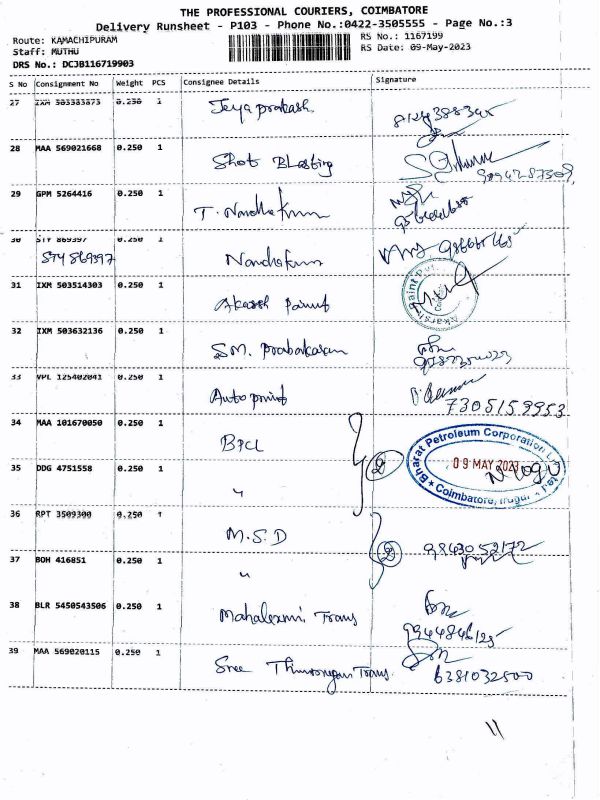 THE PROFESSIONAL COURIERS, COIMBATORE
Delivery Runsheet - P103 - Phone No.:0422-3505555 - Page No.:3
Route: KAMACHIPURAM RS No.: 1167199
Staff: MUTHU RS Date: 09-May-2023
DRS No.: DCJ3B116719903
S No Consignment No Weight PCS Consignee Details Signature
27 IXM 503383873 0.250 1 Jeya prakash
28 MAA 569021668 0.250 1 Shot Blasting
29 GPM 5264416 0.250 1 T. Nandha Kumar
30 STY 869397 0.250 1 Nandha Kumar
STY 869397
31 IXM 503514303 0.250 1 Akarsh Paint
32 IXM 503632136 0.250 1 S.M. Prabakaran
33 VPL 125402041 0.250 1 Auto print 7305159953
34 MAA 101670050 0.250 1 BPCL
Bharat Petroleum Corporation
09 MAY 2023
Coimbatore
35 DDG 4751558 0.250 1 " 2
36 RPT 3509300 0.250 1 M.S.D 9843052172
37 BOH 416851 0.250 1 " 2
38 BLR 5450543506 0.250 1 Mahalaxmi Trans
39 MAA 569020115 0.250 1 Sree Trans 6381032500
11